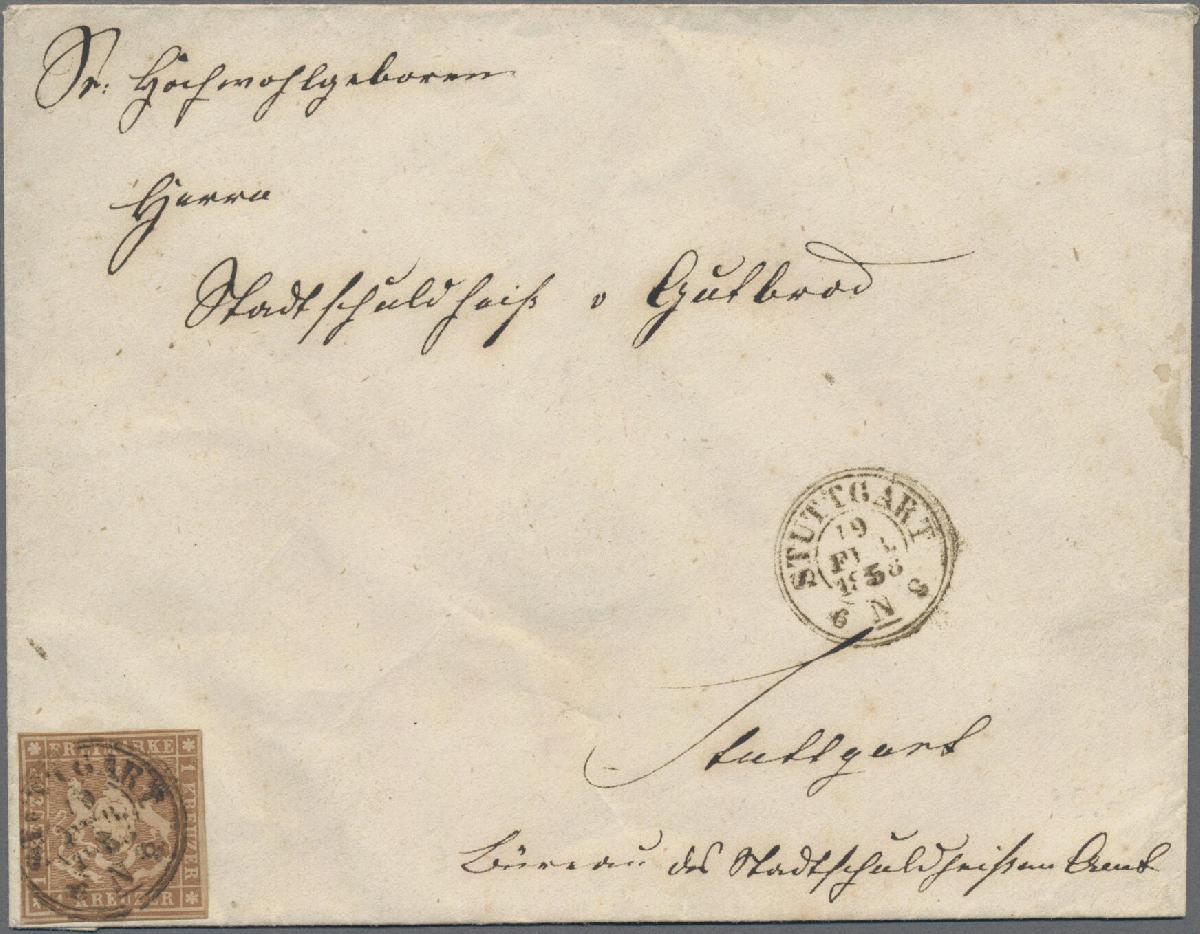 Sr: Hochwohlgeboren
Herrn
Stadtschuldheiß v Gutbrod
STUTTGART
19
1858
6 N 8
Stuttgart
Büreau des Stadtschuldheißen Amt
FREIMARKE
1 KREUZER
KREUZER
STUTTGART
19
N 8